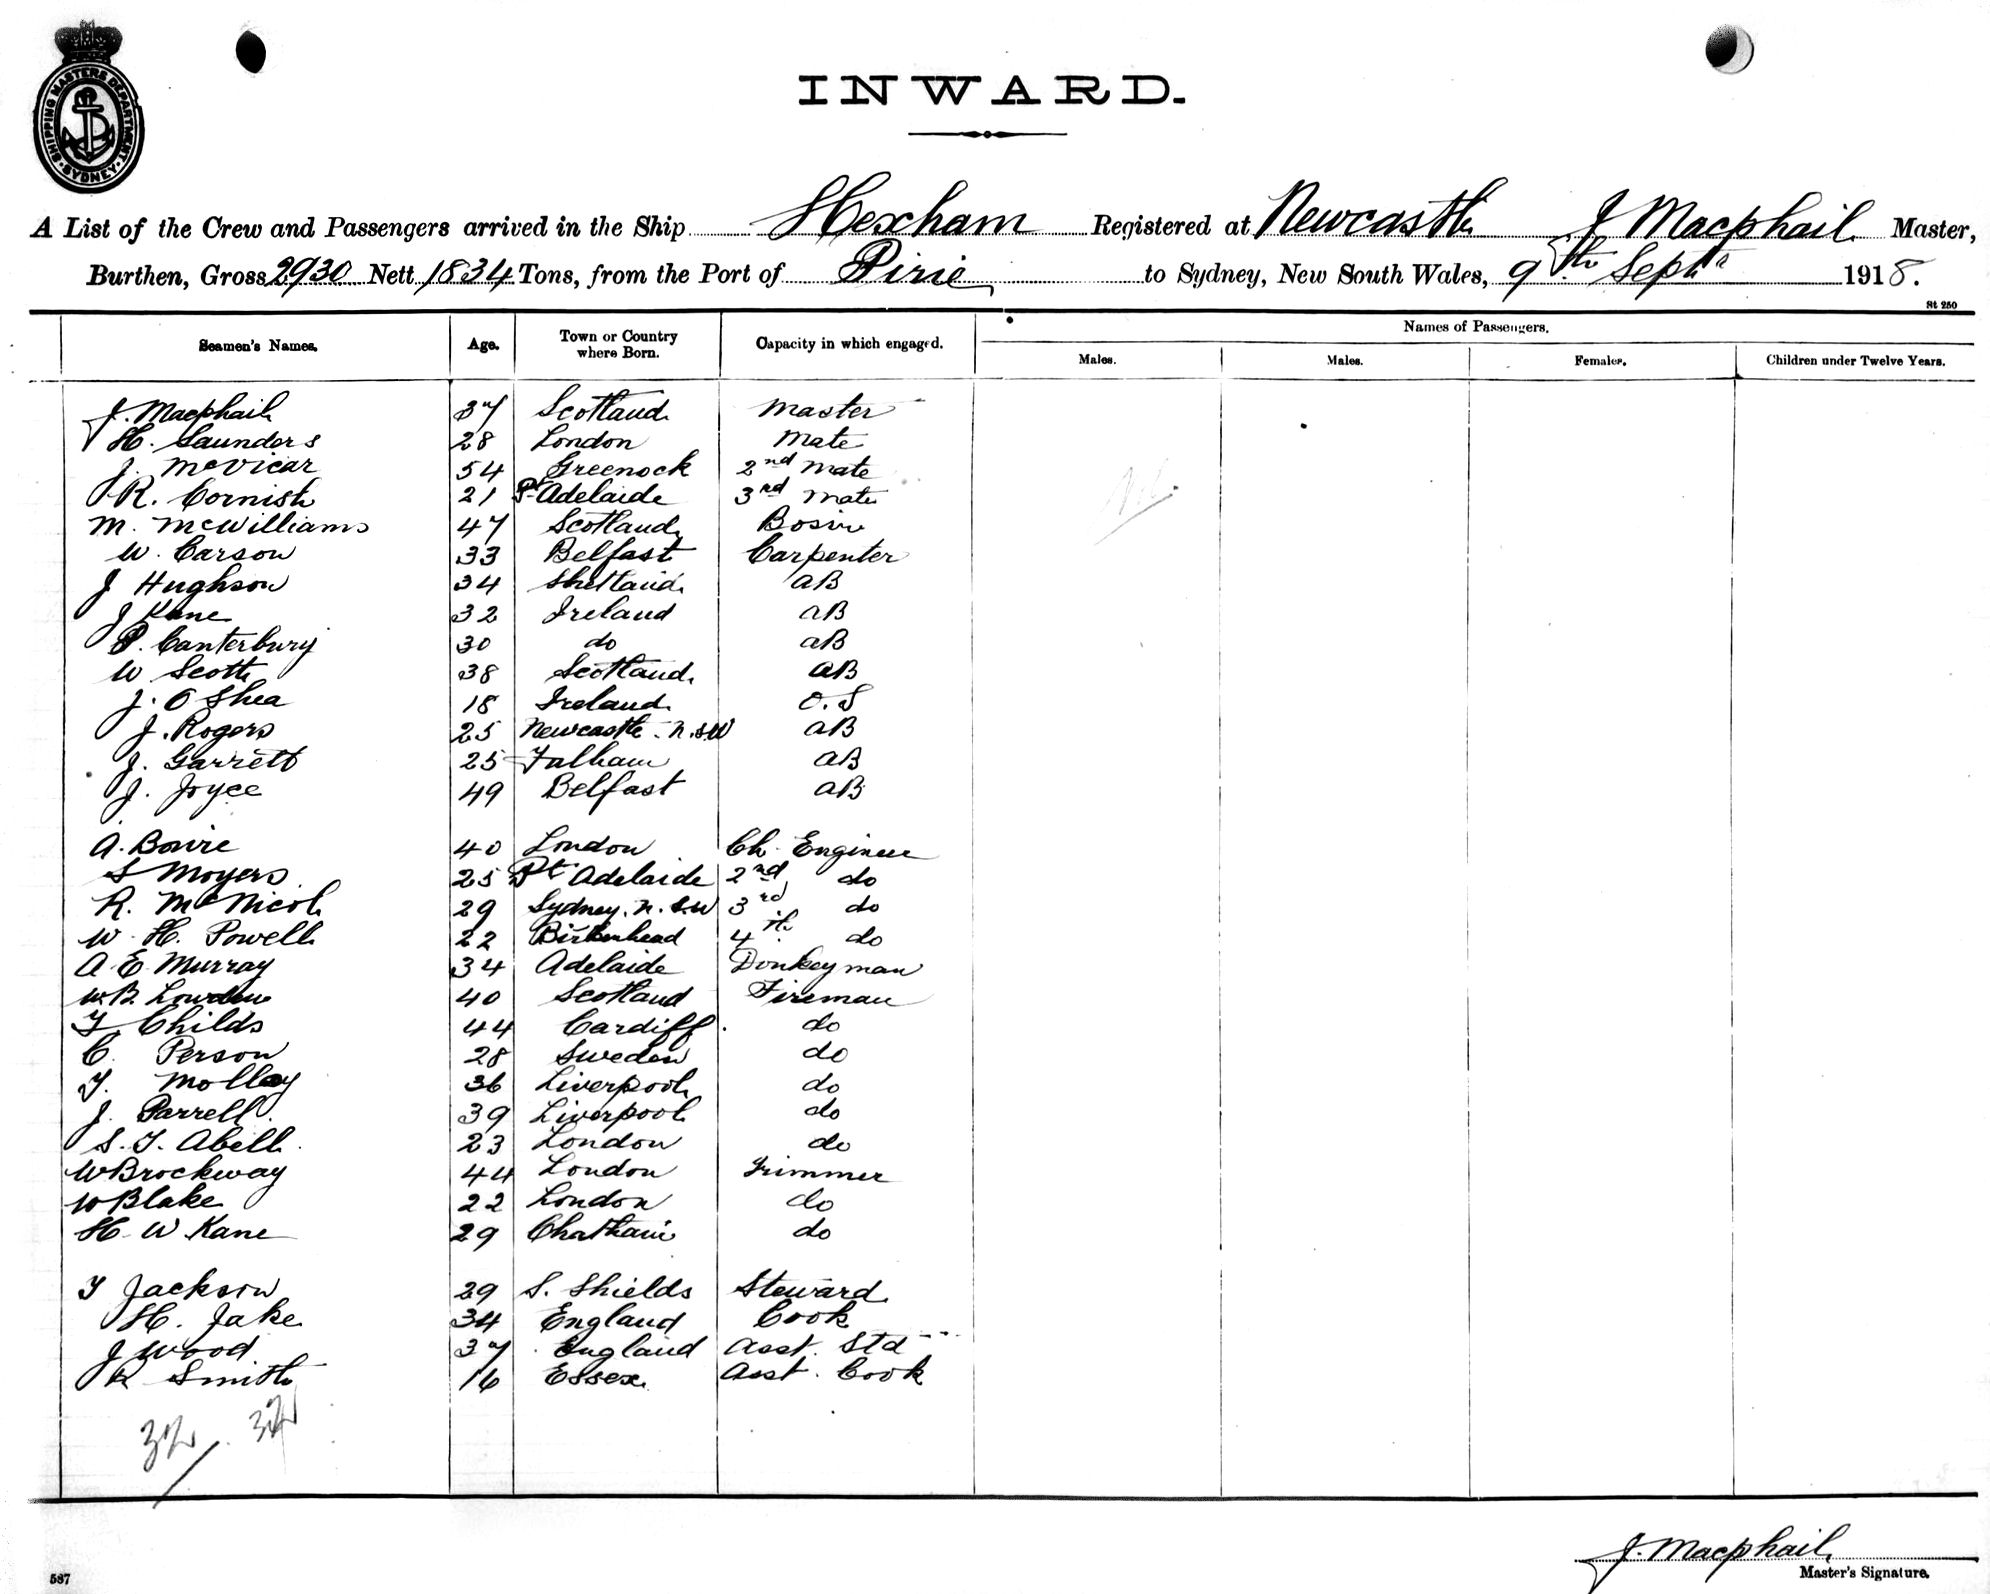 SHIPPING MASTERS DEPARTMENT
SYDNEY
INWARD.
A List of the Crew and Passengers arrived in the Ship Hexham Registered at Newcastle J Macphail Master,
Burthen, Gross 2930 Nett 1834 Tons, from the Port of Pirie to Sydney, New South Wales, 9th Sept 1918.
St 250
Seamen's Names. Age. Town or Country where Born. Capacity in which engaged. Names of Passengers.
Males. Males. Females. Children under Twelve Years.
J. Macphail 37 Scotland Master
H. Saunders 28 London Mate
J. McVicar 54 Greenock 2nd Mate
R. Cornish 21 Pt Adelaide 3rd Mate
M. McWilliams 47 Scotland Bosin
W. Carson 33 Belfast Carpenter
J Hughson 34 Shetland AB
J Kane 32 Ireland AB
P. Canterbury 30 do AB
W Scott 38 Scotland AB
J. O Shea 18 Ireland O.S
J. Rogers 25 Newcastle. N.S.W AB
J. Garrett 25 Fulham AB
J. Joyce 49 Belfast AB
A. Bowie 40 London Ch. Engineer
S Moyers 25 Pt Adelaide 2nd do
R. McNicol 29 Sydney. N.S.W 3rd do
W. H. Powell 22 Birkenhead 4th do
A E Murray 34 Adelaide Donkeyman
W.B. Lowden 40 Scotland Fireman
T Childs 44 Cardiff. do
C. Person 28 Sweden do
T. Molloy 36 Liverpool do
J. Parrell 39 Liverpool do
S. T. Abell 23 London do
W Brockway 44 London Trimmer
W Blake 22 London do
H. W Kane 29 Chatham do
T Jackson 29 S. Shields Steward
H. Jake 34 England Cook
J Wood 37 England Asst. Std
R Smith 16 Essex Asst. Cook
32 32
J. Macphail
Master's Signature.
587